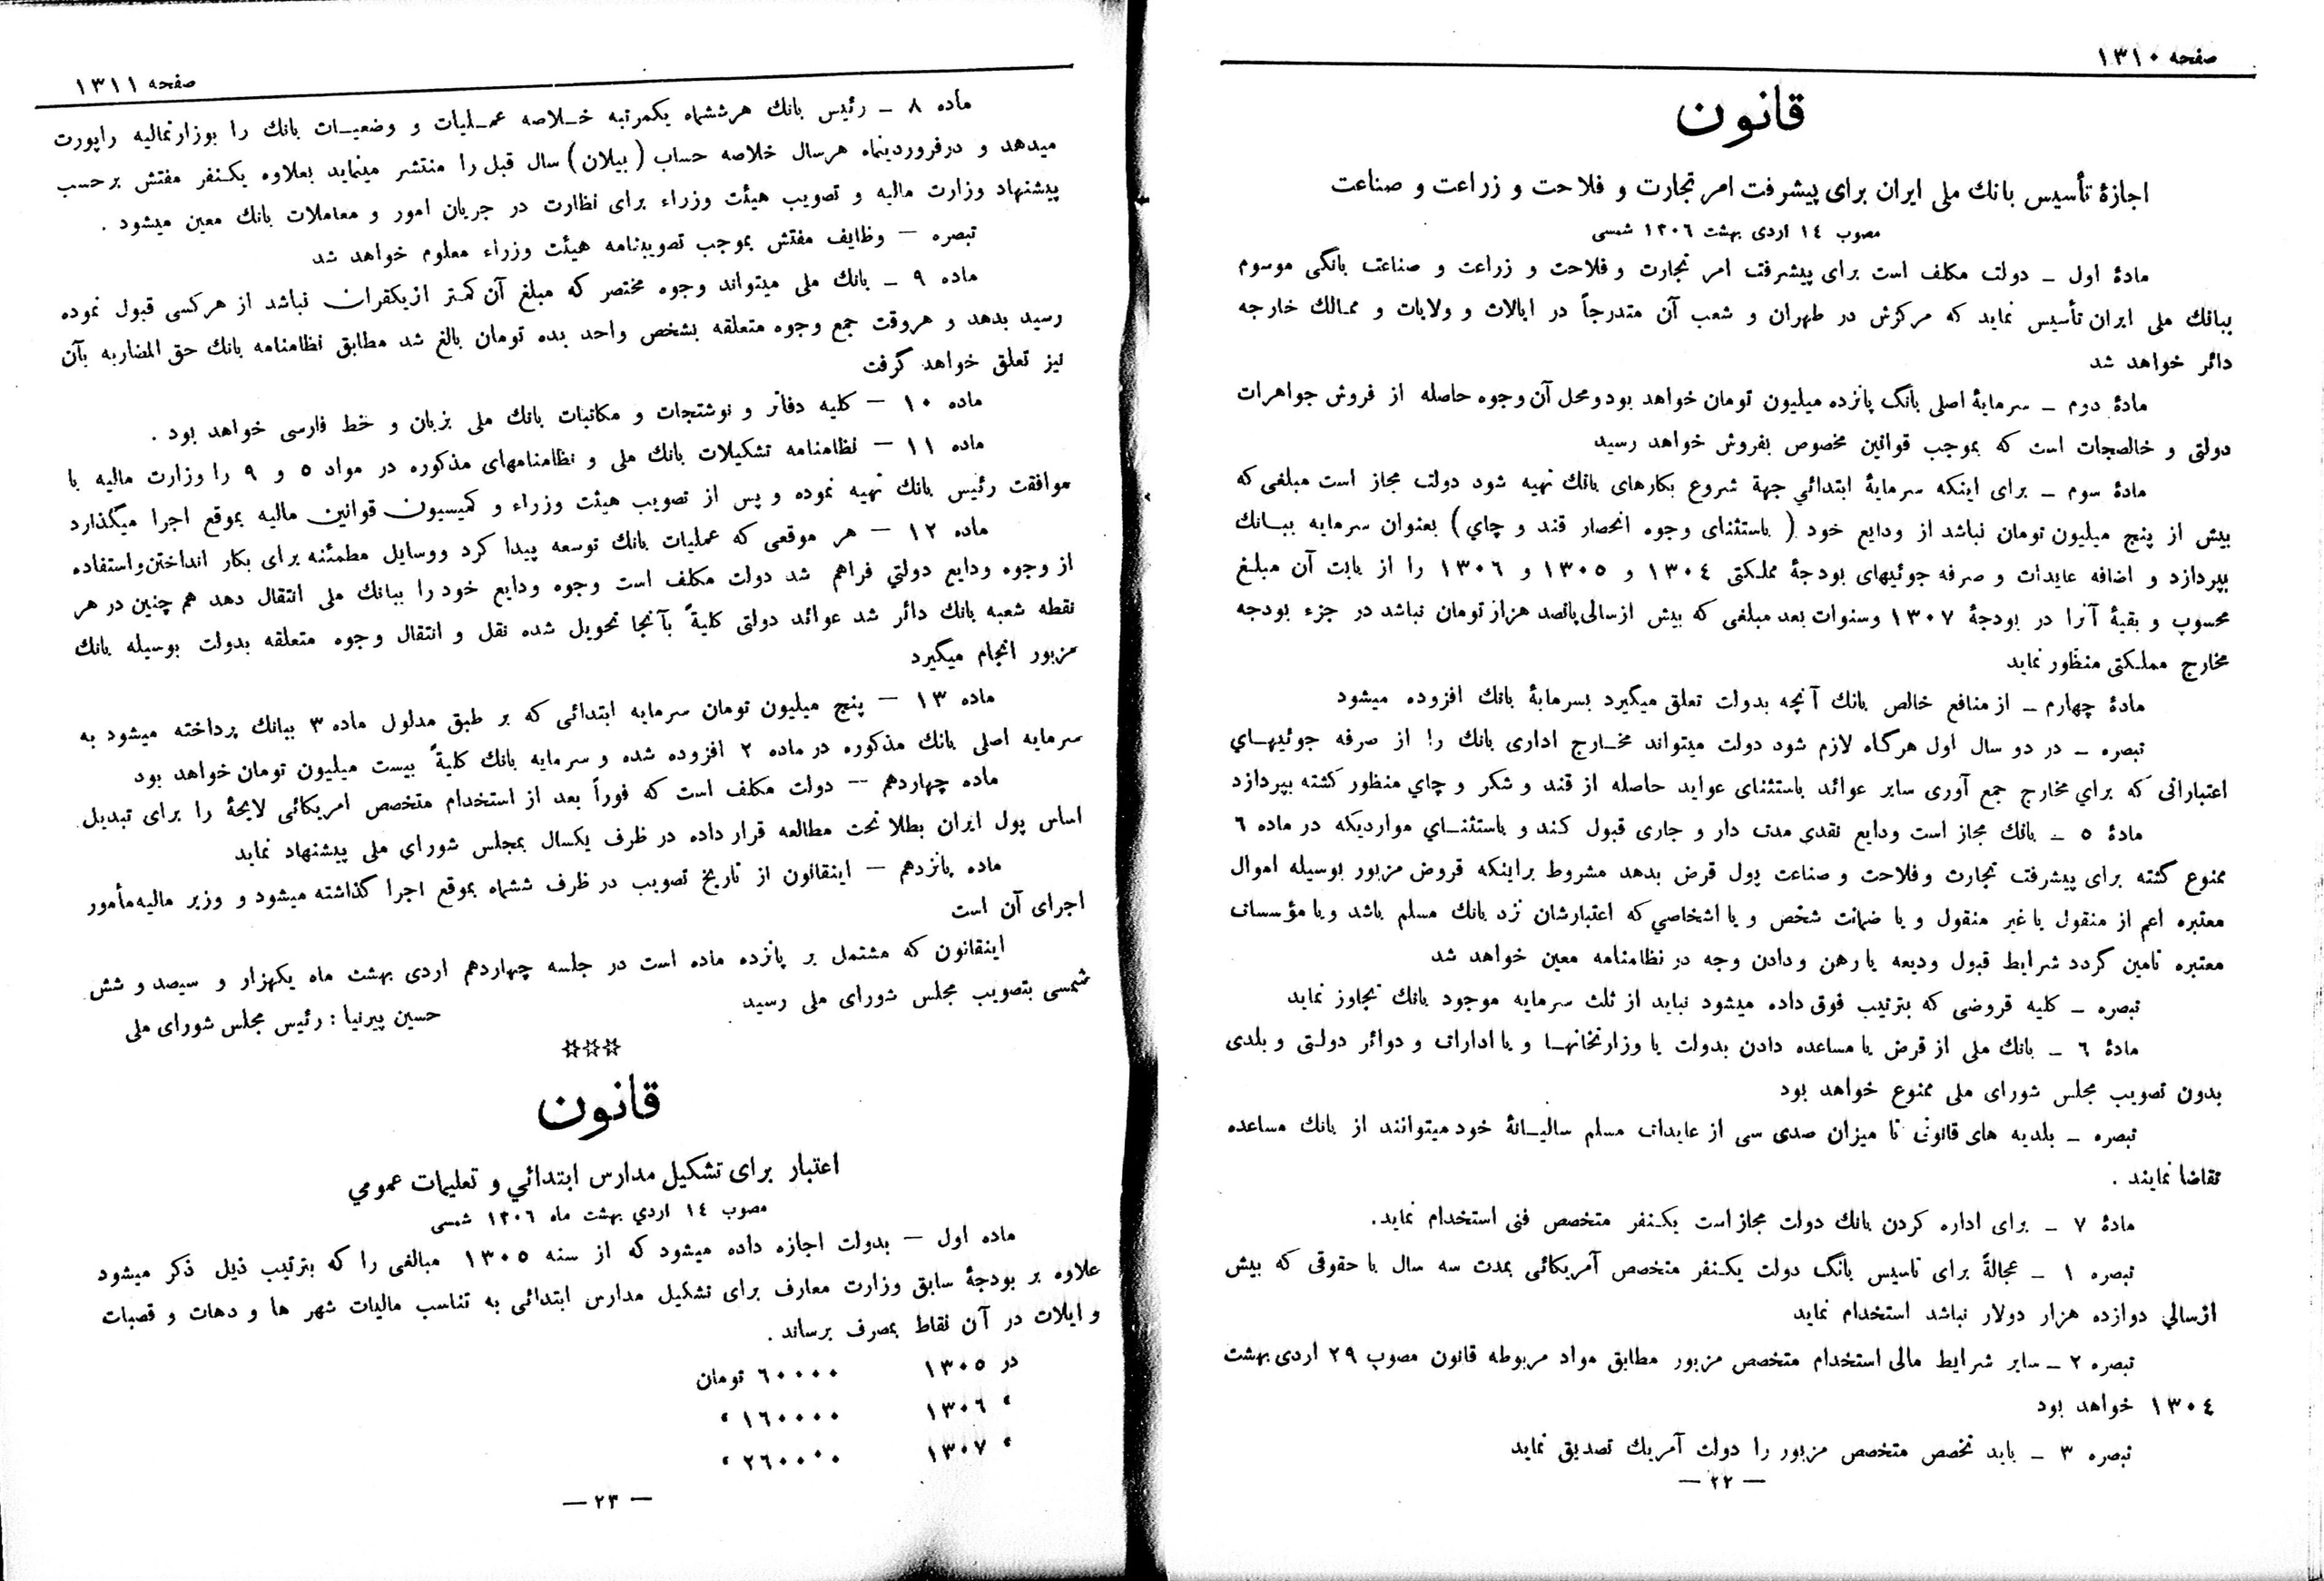 صفحه ۱۳۱۰
قانون
اجازهٔ تأسیس بانك ملی ایران برای پیشرفت امر تجارت و فلاحت و زراعت و صناعت
مصوب ١٤ اردی بهشت ١٣٠٦ شمسی
مادهٔ اول ـ دولت مکلف است برای پیشرفت امر تجارت و فلاحت و زراعت و صناعت بانگی موسوم
ببانك ملی ایران تأسیس نماید که مرکزش در طهران و شعب آن متدرجاً در ایالات و ولایات و ممالك خارجه
دائر خواهد شد
مادهٔ دوم ـ سرمایهٔ اصلی بانگ پانزده میلیون تومان خواهد بود و محل آن وجوه حاصله از فروش جواهرات
دولتی و خالصجات است که بموجب قوانین مخصوص بفروش خواهد رسید
مادهٔ سوم ـ برای اینکه سرمایهٔ ابتدائي جهة شروع بکارهای بانك تهیه شود دولت مجاز است مبلغی که
بیش از پنج میلیون تومان نباشد از ودایع خود ( باستثنای وجوه انحصار قند و چاي ) بعنوان سرمایه ببـانك
بپردازد و اضافه عایدات و صرفه جوئیهای بودجهٔ مملکتی ١٣٠٤ و ١٣٠٥ و ١٣٠٦ را از بابت آن مبلـغ
محسوب و بقیهٔ آنرا در بودجهٔ ١٣٠٧ وسنوات بعد مبلغی که بیش ازسالی پانصد هزار تومان نباشد در جزء بودجه
مخارج مملـکتی منظور نماید
مادهٔ چهارم ـ از منافع خالص بانك آنچه بدولت تعلق میگیرد بسرمایهٔ بانك افزوده میشود
تبصره ـ در دو سال اول هرگاه لازم شود دولت میتواند مخـارج اداری بانك را از صرفه جوئیهـاي
اعتباراتی که براي مخارج جمع آوری سایر عوائد باستثنای عواید حاصله از قند و شکر و چاي منظور کشته بپردازد
مادهٔ ٥ ـ بانك مجاز است ودایع نقدی مدت دار و جاری قبول کند و باستثنـاي مواردیکه در ماده ٦
ممنوع گشته برای پیشرفت تجارت و فلاحت و صناعت پول قرض بدهد مشروط براینکه قروض مزبور بوسیله اموال
معتبره اعم از منقول یا غیر منقول و یا ضمانت شخص و یا اشخاصي که اعتبارشان نزد بانك مسلم باشد و یا مؤسسات
معتبره تامین گردد شرایط قبول ودیعه یا رهن ودادن وجه در نظامنامه معین خواهد شد
تبصره ـ کلیه قروضی که بترتیب فوق داده میشود نباید از ثلث سرمایه موجود بانك تجاوز نماید
مادهٔ ٦ ـ بانك ملی از قرض یا مساعده دادن بدولت یا وزارتخانهـا و یا ادارات و دوائر دولـتی و بلدی
بدون تصویب مجلس شورای ملی ممنوع خواهد بود
تبصره ـ بلدیه های قانونی تا میزان صدی سی از عایدات مسلم سالیـانهٔ خود میتوانند از بانك مساعده
تقاضا نمایند .
مادهٔ ٧ ـ برای اداره کردن بانك دولت مجاز است یکـنفر متخصص فنی استخدام نماید.
تبصره ١ ـ عجالةً برای تاسیس بانگ دولت یکـنفر متخصص آمریکائی بمدت سه سال با حقوقی که بیش
ازسالي دوازده هزار دولار نباشد استخدام نماید
تبصره ٢ ـ سایر شرایط مالی استخدام متخصص مزبور مطابق مواد مربوطه قانون مصوب ٢٩ اردی بهشت
١٣٠٤ خواهد بود
تبصره ٣ ـ باید تخصص متخصص مزبور را دولت آمریك تصدیق نماید
— ٢٢ —
صفحه ١٣١١
ماده ٨ ـ رئیس بانك هرششماه یکمرتبه خـلاصه عمـلیات و وضعیـات بانك را بوزارتمالیه راپورت
میدهد و درفروردینماه هرسال خلاصه حساب ( بیلان ) سال قبل را منتشر مینماید بعلاوه یکـنفر مفتش برحسب
پیشنهاد وزارت مالیه و تصویب هیئت وزراء برای نظارت در جریان امور و معاملات بانك معین میشود .
تبصره — وظایف مفتش بموجب تصویبنامه هیئت وزراء معلوم خواهد شد
ماده ٩ ـ بانك ملی میتواند وجوه مختصر که مبلغ آن کمتر ازیکقران نباشد از هرکسی قبول نموده
رسید بدهد و هروقت جمع وجوه متعلقه بشخص واحد بده تومان بالغ شد مطابق نظامنامه بانك حق المضاربه بآن
نیز تعلق خواهد گرفت
ماده ١٠ — کلیه دفاتر و نوشتجات و مکاتبات بانك ملی بزبان و خط فارسی خواهد بود .
ماده ١١ — نظامنامه تشکیلات بانك ملی و نظامنامهای مذکوره در مواد ٥ و ٩ را وزارت مالیه با
موافقت رئیس بانك تهیه نموده و پس از تصویب هیئت وزراء و کمیسیون قوانین مالیه بموقع اجرا میگذارد
ماده ١٢ — هر موقعی که عملیات بانك توسعه پیدا کرد ووسایل مطمئنه برای بکار انداختن واستفاده
از وجوه ودایع دولتي فراهم شد دولت مکلف است وجوه ودایع خود را ببانك ملی انتقال دهد هم چنین در هر
نقطه شعبه بانك دائر شد عوائد دولتی کلیةً بآنجا تحویل شده نقل و انتقال وجوه متعلقه بدولت بوسیله بانك
مزبور انجام میگیرد
ماده ١٣ — پنج میلیون تومان سرمایه ابتدائی که بر طبق مدلول ماده ٣ ببانك پرداخته میشود به
سرمایه اصلی بانك مذکوره در ماده ٢ افزوده شده و سرمایه بانك کلیةً بیست میلیون تومان خواهد بود
ماده چهاردهم — دولت مکلف است که فوراً بعد از استخدام متخصص امریکائی لایحهٔ را برای تبدیل
اساس پول ایران بطلا تحت مطالعه قرار داده در ظرف یکسال بمجلس شوراي ملی پیشنهاد نماید
ماده پانزدهم — اینقانون از تاریخ تصویب در ظرف ششماه بموقع اجرا گذاشته میشود و وزیر مالیه مأمور
اجرای آن است
اینقانون که مشتمل بر پانزده ماده است در جلسه چهاردهم اردی بهشت ماه یکهزار و سیصد و شش
شمسی بتصویب مجلس شورای ملی رسید
حسین پیرنیا : رئیس مجلس شورای ملی
☆☆☆
قانون
اعتبار برای تشکیل مدارس ابتدائي و تعلیمات عمومي
مصوب ١٤ اردي بهشت ماه ١٣٠٦ شمسی
ماده اول — بدولت اجازه داده میشود که از سنه ١٣٠٥ مبالغی را که بترتیب ذیل ذکر میشود
علاوه بر بودجهٔ سابق وزارت معارف برای تشکیل مدارس ابتدائی به تناسب مالیات شهر ها و دهات و قصبات
و ایلات در آن نقاط بمصرف برساند .
در ١٣٠٥ ٦٠٠٠٠ تومان
« ١٣٠٦ ١٦٠٠٠٠ «
« ١٣٠٧ ٢٦٠٠٠٠ «
— ٢٣ —